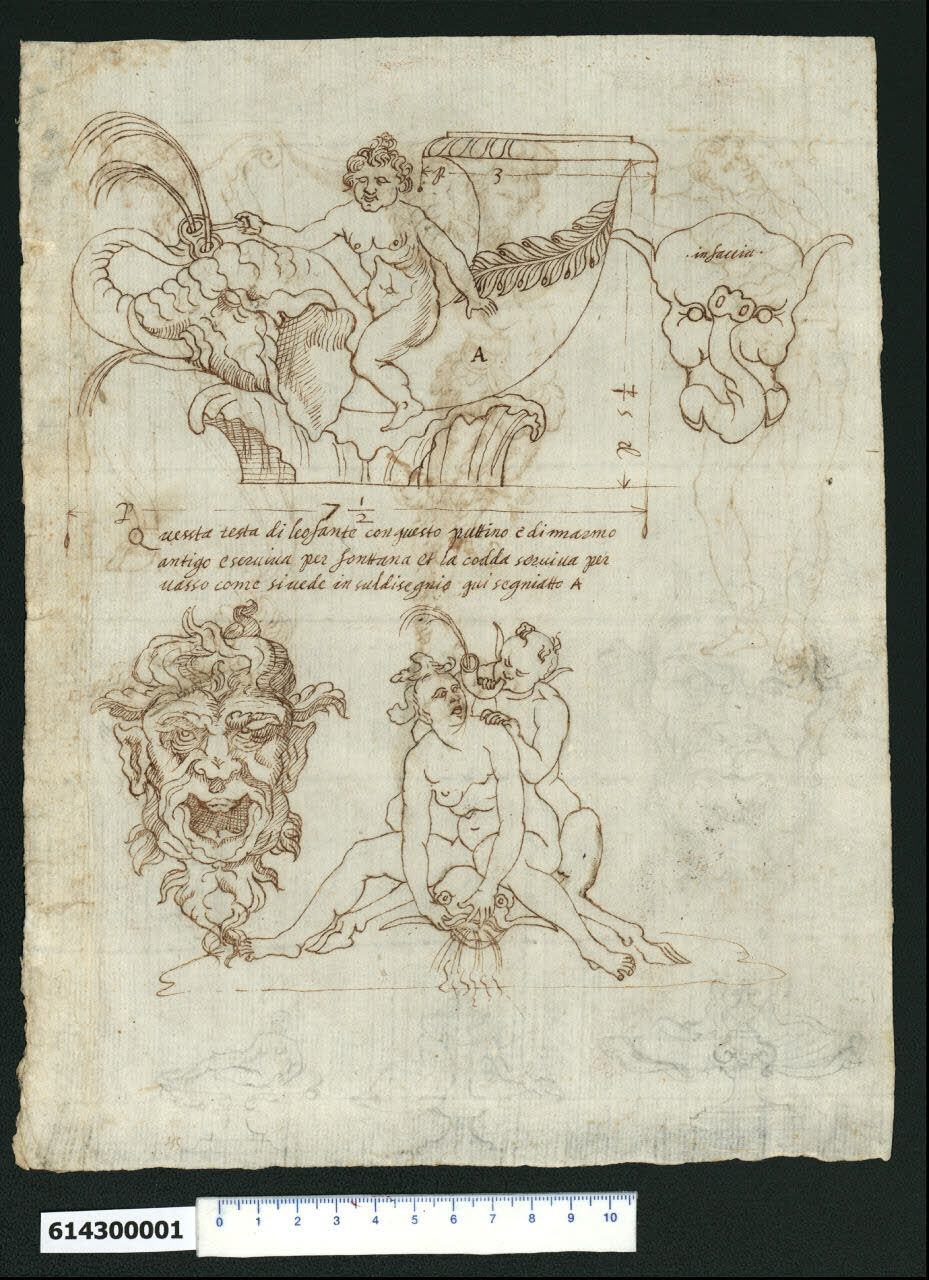 p 3
· in faccia ·
A
5 d
P 7 1/2
Quessta testa di leofante con questo puttino e di marmo
antigo e serviva per fonttana et la codda serviva per
vasso come si vede in sul disegnio qui segniatto A
614300001 0 1 2 3 4 5 6 7 8 9 10